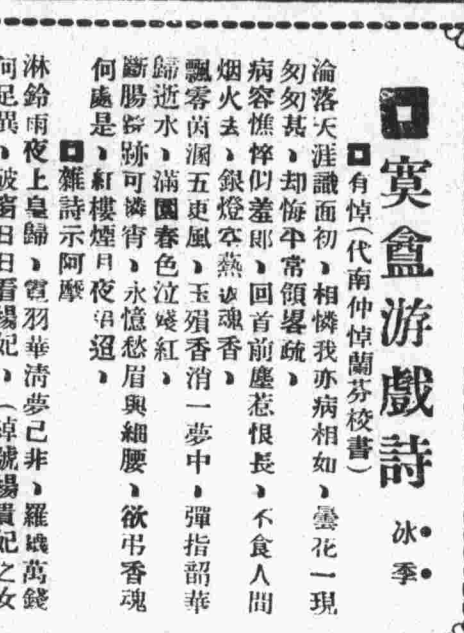 寞盦游戲詩
冰季
有悼(代南仲悼蘭芬校書)
淪落天涯識面初、相憐我亦病相如、曇花一現
匆匆甚、却悔平常領畧疏、
病容憔悴似羞郎、回首前塵惹恨長、不食人間
烟火去、銀燈空爇返魂香、
飄零茵溷五更風、玉殞香消一夢中、彈指韶華
歸逝水、滿園春色泣殘紅、
斷腸踪跡可憐宵、永憶愁眉與細腰、欲弔香魂
何處是、紅樓煙月夜迢迢、
雜詩示阿摩
淋鈴雨夜上皇歸、霓羽華清夢已非、羅襪萬錢
何足異、破窗日日看楊妃、(綽號楊貴妃之女